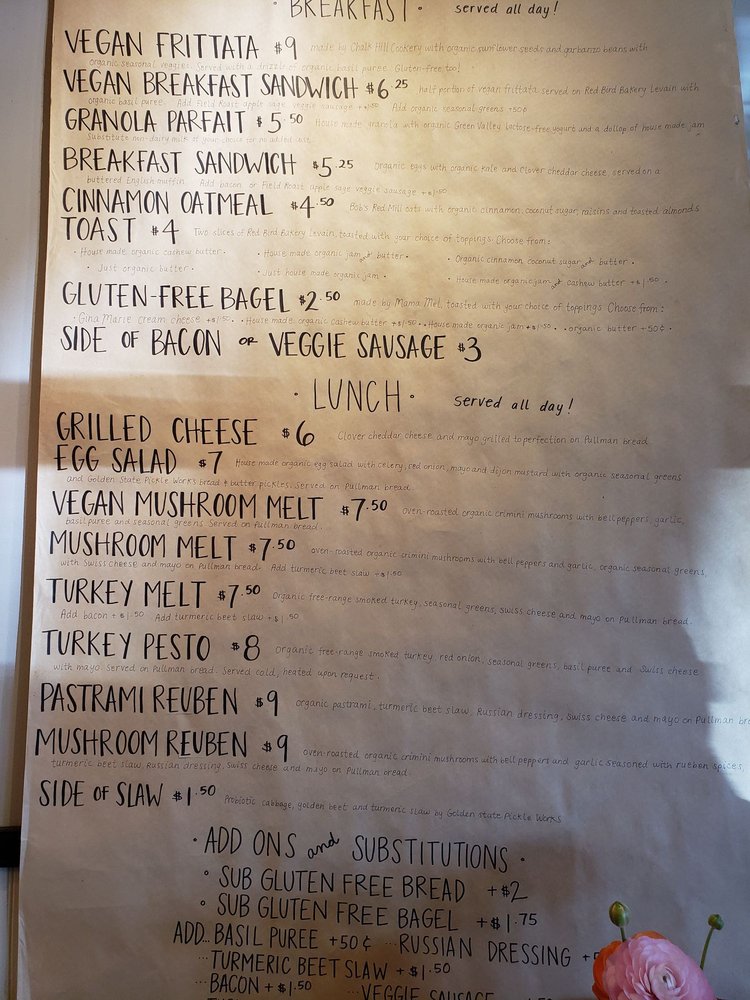 · BREAKFAST · served all day!
VEGAN FRITTATA $9 made by Chalk Hill Cookery with organic sunflower seeds and garbanzo beans with
organic seasonal veggies. Served with a drizzle of organic basil puree. Gluten-free too!
VEGAN BREAKFAST SANDWICH $6.25 Half portion of vegan frittata served on Red Bird Bakery Levain with
organic basil puree. Add Field Roast apple sage veggie sausage +$1.50 Add organic seasonal greens +50¢
GRANOLA PARFAIT $5.50 House made granola with organic Green Valley lactose-free yogurt and a dollop of house made jam
Substitute non-dairy milk of your choice for no added cost.
BREAKFAST SANDWICH $5.25 Organic eggs with organic kale and Clover cheddar cheese, served on a
buttered English muffin. Add bacon or Field Roast apple sage veggie sausage +$1.50
CINNAMON OATMEAL $4.50 Bob's Red Mill oats with organic cinnamon, coconut sugar, raisins and toasted almonds
TOAST $4 Two slices of Red Bird Bakery Levain, toasted with your choice of toppings. Choose from:
· House made organic cashew butter · · House made organic jam and butter · · Organic cinnamon, coconut sugar and butter ·
· Just organic butter · · Just house made organic jam · · House made organic jam and cashew butter +$1.50 ·
GLUTEN-FREE BAGEL $2.50 made by Mama Mel, toasted with your choice of toppings. Choose from:
· Gina Marie cream cheese +$1.50 · · House made organic cashew butter +$1.50 · · House made organic jam +$1.50 · · organic butter +50¢ ·
SIDE OF BACON OR VEGGIE SAUSAGE $3
· LUNCH · served all day!
GRILLED CHEESE $6 Clover cheddar cheese and mayo grilled to perfection on Pullman bread
EGG SALAD $7 House made organic egg salad with celery, red onion, mayo and dijon mustard with organic seasonal greens
and Golden State Pickle Works Bread & butter pickles. Served on Pullman bread.
VEGAN MUSHROOM MELT $7.50 oven-roasted organic crimini mushrooms with bell peppers, garlic,
basil puree and seasonal greens Served on Pullman bread.
MUSHROOM MELT $7.50 oven-roasted organic crimini mushrooms with bell peppers and garlic, organic seasonal greens,
with Swiss Cheese and mayo on Pullman bread. Add turmeric beet slaw +$1.50
TURKEY MELT $7.50 Organic free-range smoked turkey, seasonal greens, Swiss cheese and mayo on Pullman bread.
Add bacon +$1.50 Add turmeric beet slaw +$1.50
TURKEY PESTO $8 Organic free-range smoked turkey, red onion, seasonal greens, basil puree and Swiss cheese
with mayo. Served on Pullman bread. Served cold, heated upon request.
PASTRAMI REUBEN $9 organic pastrami, turmeric beet slaw, Russian dressing, Swiss cheese and mayo on Pullman
MUSHROOM REUBEN $9 oven-roasted organic crimini mushrooms with bell peppers and garlic seasoned with rueben spices,
turmeric beet slaw, Russian dressing, Swiss cheese and mayo on Pullman bread.
SIDE OF SLAW $1.50 Probiotic cabbage, golden beet and turmeric slaw by Golden State Pickle Works
· ADD ONS and SUBSTITUTIONS ·
· SUB GLUTEN FREE BREAD +$2
· SUB GLUTEN FREE BAGEL +$1.75
ADD... BASIL PUREE +50¢ ... RUSSIAN DRESSING
... TURMERIC BEET SLAW +$1.50
... BACON +$1.50 ... VEGGIE SAUSAGE